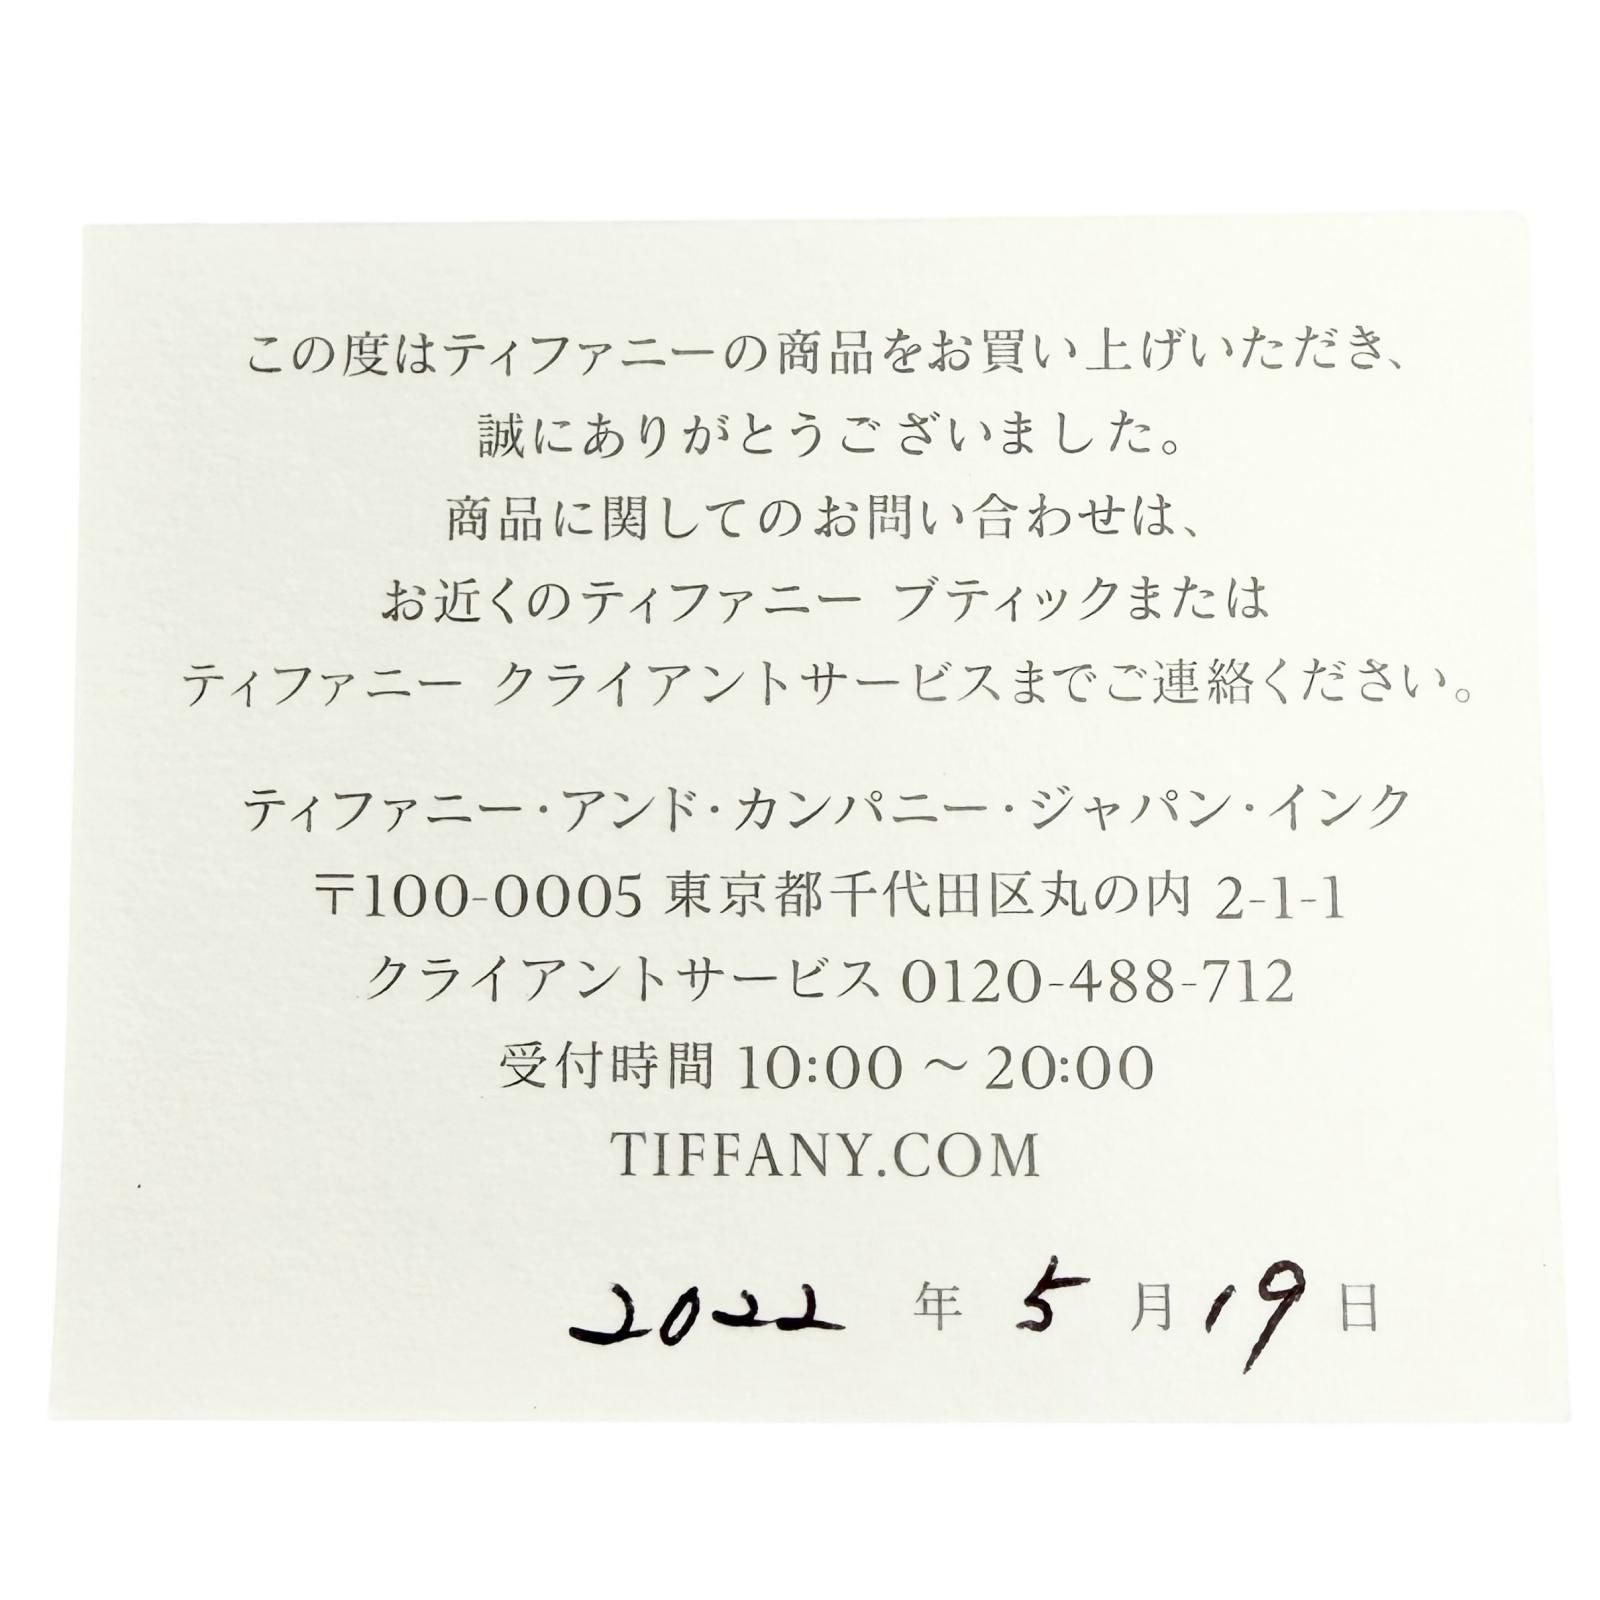 この度はティファニーの商品をお買い上げいただき、
誠にありがとうございました。
商品に関してのお問い合わせは、
お近くのティファニー ブティックまたは
ティファニー クライアントサービスまでご連絡ください。
ティファニー・アンド・カンパニー・ジャパン・インク
〒100-0005 東京都千代田区丸の内 2-1-1
クライアントサービス 0120-488-712
受付時間 10:00 〜 20:00
TIFFANY.COM
2022 年 5 月 19 日